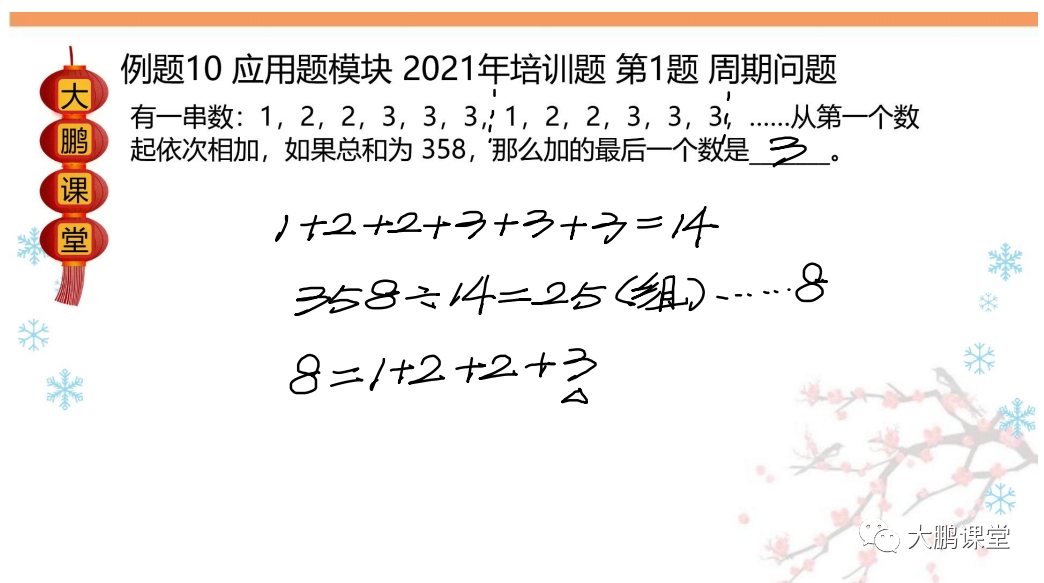 大鹏课堂
例题10 应用题模块 2021年培训题 第1题 周期问题
有一串数：1，2，2，3，3，3，1，2，2，3，3，3，……从第一个数
起依次相加，如果总和为 358，那么加的最后一个数是___3___。
1+2+2+3+3+3=14
358÷14=25(组)……8
8=1+2+2+3
大鹏课堂